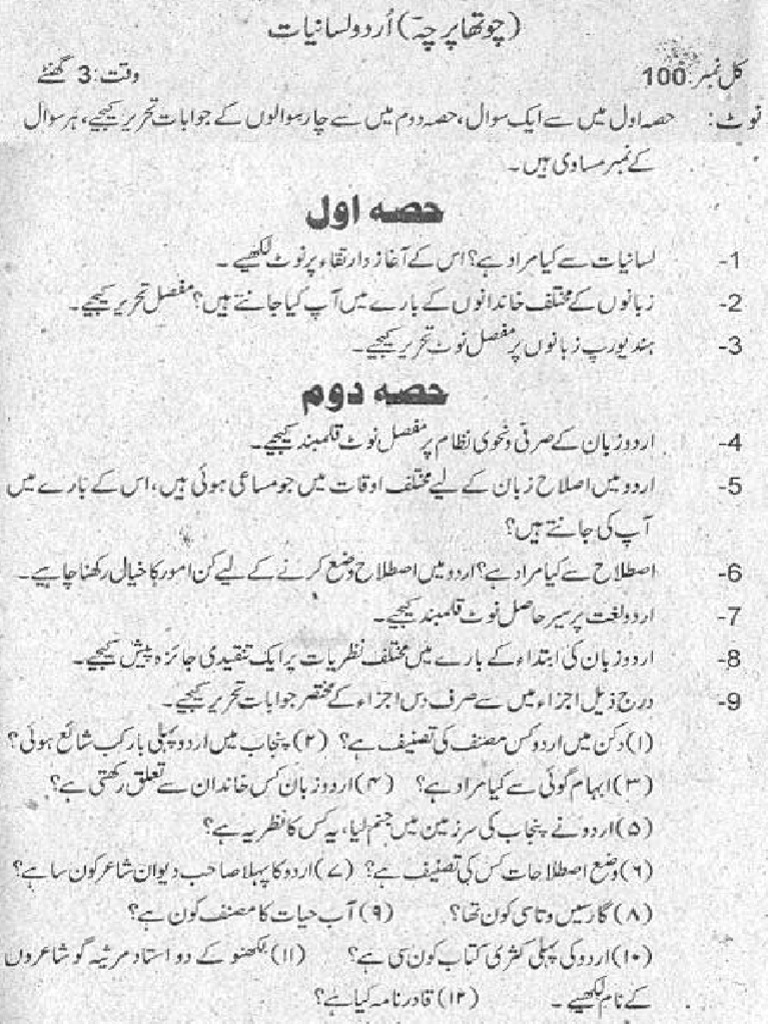 (چوتھا پرچہ) اُردو لسانیات
کل نمبر: 100 وقت: 3 گھنٹے
نوٹ: حصہ اول میں سے ایک سوال، حصہ دوم میں سے چار سوالوں کے جوابات تحریر کیجیے، ہر سوال
کے نمبر مساوی ہیں۔
حصہ اول
1- لسانیات سے کیا مراد ہے؟ اس کے آغاز و ارتقاء پر نوٹ لکھیے۔
2- زبانوں کے مختلف خاندانوں کے بارے میں آپ کیا جانتے ہیں؟ مفصل تحریر کیجیے۔
3- ہند یورپ زبانوں پر مفصل نوٹ تحریر کیجیے۔
حصہ دوم
4- اردو زبان کے صرفی و نحوی نظام پر مفصل نوٹ قلمبند کیجیے۔
5- اردو میں اصلاح زبان کے لیے مختلف اوقات میں جو مساعی ہوئی ہیں، اس کے بارے میں
آپ کی جانتے ہیں؟
6- اصطلاح سے کیا مراد ہے؟ اردو میں اصطلاح وضع کرنے کے لیے کن امور کا خیال رکھنا چاہیے۔
7- اردو لغت پر سیر حاصل نوٹ قلمبند کیجیے۔
8- اردو زبان کی ابتداء کے بارے میں مختلف نظریات پر ایک تنقیدی جائزہ پیش کیجیے۔
9- درج ذیل اجزاء میں سے صرف دس اجزاء کے مختصر جوابات تحریر کیجیے۔
(۱) دکن میں اردو کس مصنف کی تصنیف ہے؟ (۲) پنجاب میں اردو پہلی بار کب شائع ہوئی؟
(۳) ابہام گوئی سے کیا مراد ہے؟ (۴) اردو زبان کس خاندان سے تعلق رکھتی ہے؟
(۵) اردو نے پنجاب کی سرزمین میں جنم لیا، یہ کس کا نظریہ ہے؟
(۶) وضع اصطلاحات کس کی تصنیف ہے؟ (۷) اردو کا پہلا صاحب دیوان شاعر کون سا ہے؟
(۸) گارسیں وتاسی کون تھا؟ (۹) آب حیات کا مصنف کون ہے؟
(۱۰) اردو کی پہلی نثری کتاب کون سی ہے؟ (۱۱) لکھنو کے دو استاد مرثیہ گو شاعروں
کے نام لکھیے۔ (۱۲) قادر نامہ کیا ہے؟